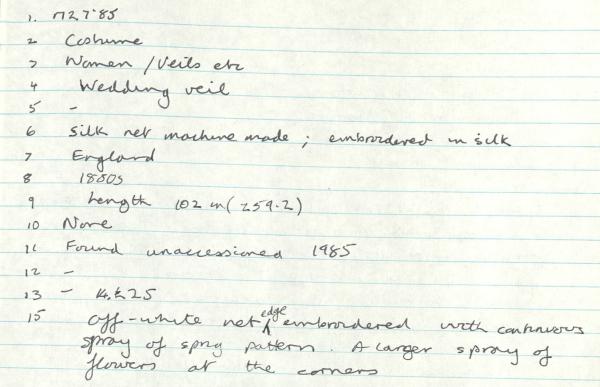 1. M27'85
2 Costume
3 Women / Veils etc
4 Wedding veil
5 -
6 silk net machine made ; embroidered in silk
7 England
8 1880s
9 Length 102 in (259.2)
10 None
11 Found unaccessioned 1985
12 -
13 - £25
15 off-white net edge embroidered with continuous
spray of sprig pattern. A larger spray of
flowers at the corners